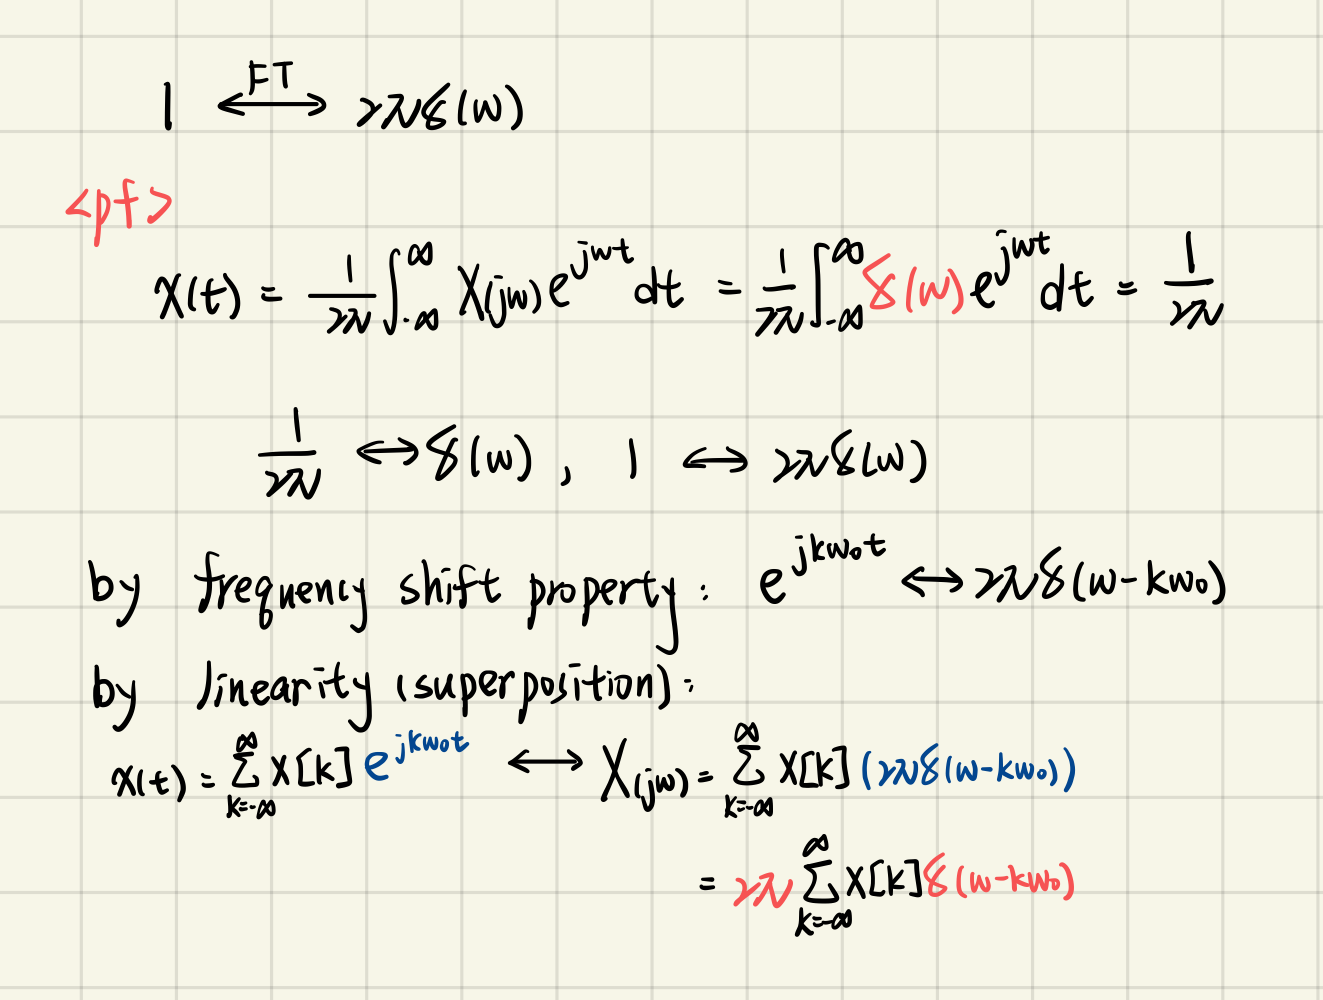 1 ⟷ FT 2πδ(w)
<pf>
x(t) = 1/2π ∫_{-∞}^{∞} X(jw) e^{jwt} dt = 1/2π ∫_{-∞}^{∞} δ(w) e^{jwt} dt = 1/2π
1/2π ⟷ δ(w) , 1 ⟷ 2πδ(w)
by frequency shift property : e^{jkw₀t} ⟷ 2πδ(w-kw₀)
by linearity (superposition) :
x(t) = ∑_{k=-∞}^{∞} X[k] e^{jkw₀t} ⟷ X(jw) = ∑_{k=-∞}^{∞} X[k] (2πδ(w-kw₀))
= 2π ∑_{k=-∞}^{∞} X[k] δ(w-kw₀)